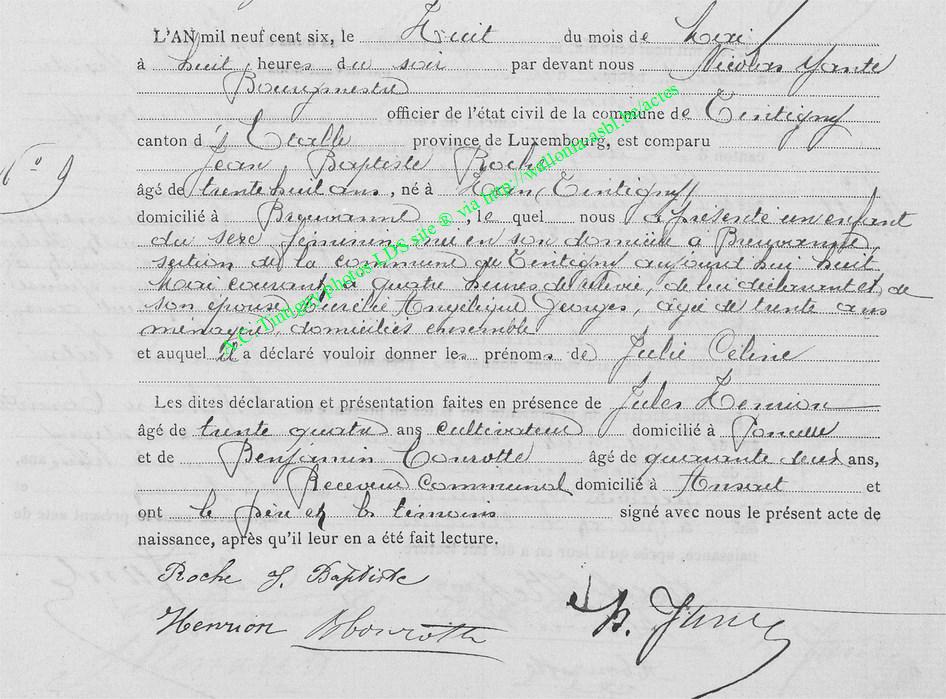 L'AN mil neuf cent six, le huit du mois de Mai
à huit heures du soir par devant nous Nicolas Yante
Bourgmestre
officier de l'état civil de la commune de Tintigny
canton d' Etalle province de Luxembourg, est comparu
Jean Baptiste Roche
âgé de trente huit ans, né à Han, Tintigny
domicilié à Breuvanne, le quel nous a présenté un enfant
du sexe féminin, née en son domicile à Breuvanne
section de la commune de Tintigny aujourd'hui huit
Mai courant à quatre heures de relevée, de lui déclarant et de
son épouse Angélique Georges, âgée de trente ans
ménagère, domiciliés ensemble
et auquel il a déclaré vouloir donner les prénoms de Julie Céline
Les dites déclaration et présentation faites en présence de Jules Henrion
âgé de trente quatre ans cultivateur domicilié à Poncelle
et de Benjamin Conrotte âgé de quarante deux ans,
Receveur Communal domicilié à Ansart et
ont le père et les témoins signé avec nous le présent acte de
naissance, après qu'il leur en a été fait lecture.
Roche J. Baptiste
Henrion BConrotte N. Yante
A.C. Tintigny photos LDS site ® via http://wallonia-asbl.be/actes